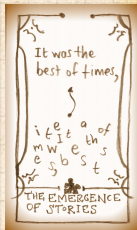 It was the
best of times,
i t e i t a of
m w e e th s
e s b s t
THE EMERGENCE
OF STORIES